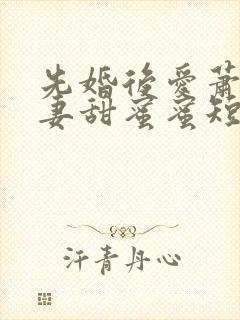 先婚後愛蕭
妻甜蜜蜜短
汗青丹心